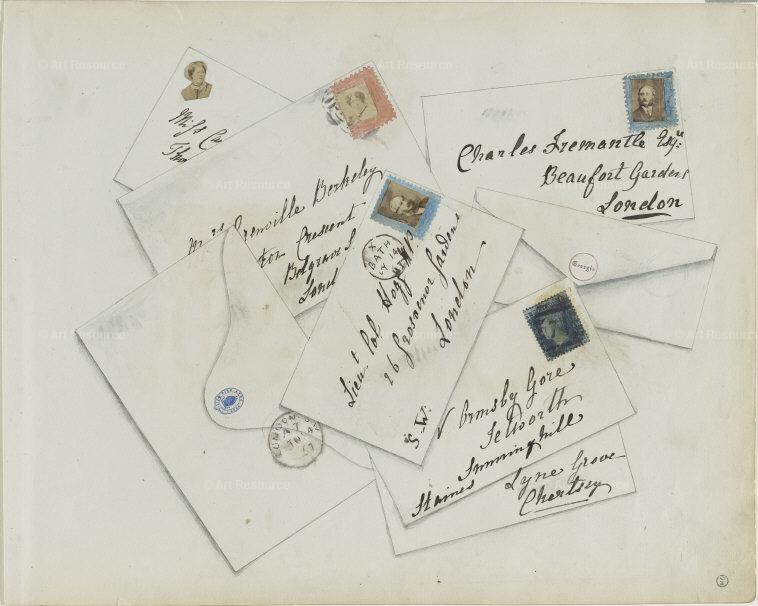 Miss Cu
Tho
Grenville Berkeley
Crescent
Belgrave S
Lond
Charles Fremantle Esqr:
Beaufort Gardens
London
BATH
Lieut. Col Hogg MP
26 Grosvenor Gardens
London
S.W.
Georgie
V Ormsby Gore
Tetworth
Sunninghill
Staines
Lyne Grove
Chertsey
LONDON
© Art Resource